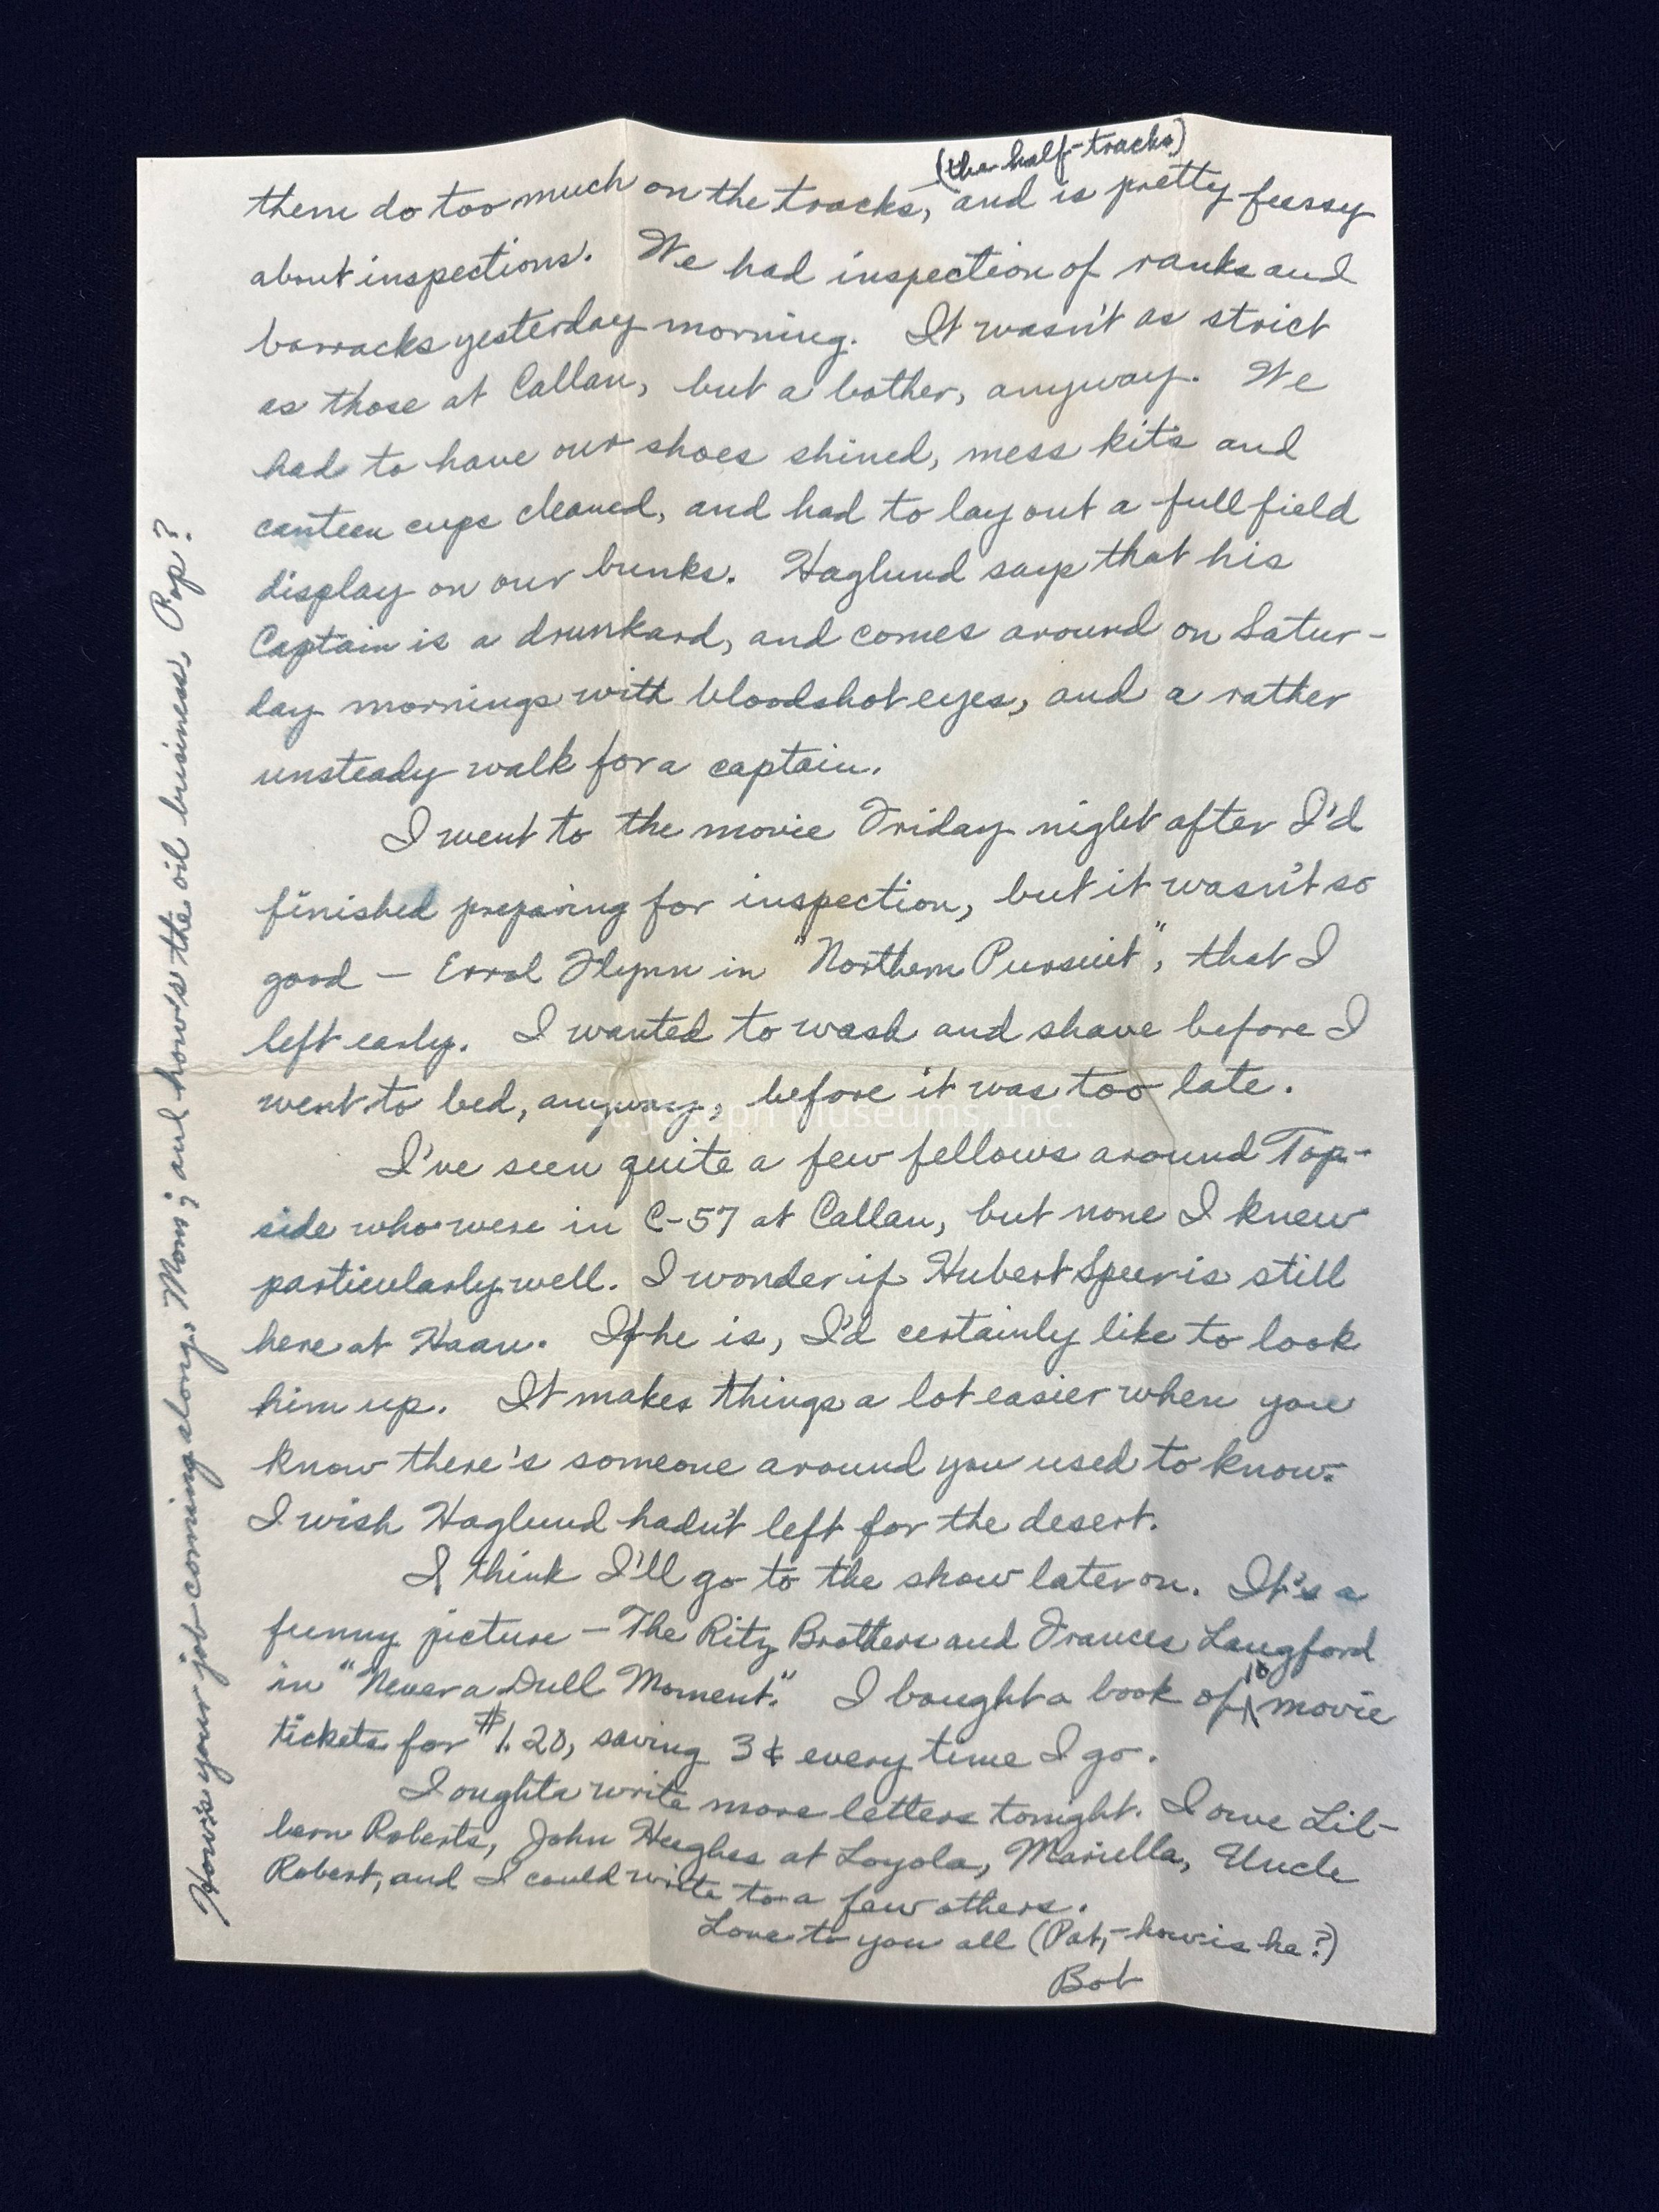 (the half-tracks)
them do too much on the tracks, and is pretty fussy
about inspections. We had inspection of ranks and
barracks yesterday morning. It wasn't as strict
as those at Callan, but a bother, anyway. We
had to have our shoes shined, mess kits and
canteen cups cleaned, and had to lay out a full field
display on our bunks. Haglund says that his
Captain is a drunkard, and comes around on Satur-
day mornings with bloodshot eyes, and a rather
unsteady walk for a captain.
I went to the movie Friday night after I'd
finished preparing for inspection, but it wasn't so
good — Errol Flynn in "Northern Pursuit", that I
left early. I wanted to wash and shave before I
went to bed, anyway, before it was too late.
St. Joseph Museums, Inc.
I've seen quite a few fellows around Top-
side who were in C-57 at Callan, but none I knew
particularly well. I wonder if Hubert Speer is still
here at Haan. If he is, I'd certainly like to look
him up. It makes things a lot easier when you
know there's someone around you used to know.
I wish Haglund hadn't left for the desert.
I think I'll go to the show later on. It's a
funny picture — The Ritz Brothers and Frances Langford
in "Never a Dull Moment." I bought a book of 10 movie
tickets for $1.20, saving 3¢ every time I go.
I oughta write more letters tonight. I owe Lil-
bern Roberts, John Hughes at Loyola, Mariella, Uncle
Robert, and I could write to a few others.
Love to you all (Pat, - how is he?)
Bob
How's your job coming along, Mom; and how's the oil business, Pop?